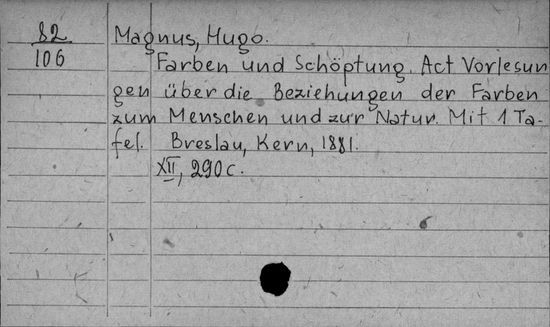 82
106
Magnus, Hugo.
Farben und Schöptung. Act Vorlesun
gen über die Beziehungen der Farben
zum Menschen und zur Natur. Mit 1 Ta-
fel. Breslau, Kern, 1881.
XII, 290 c.